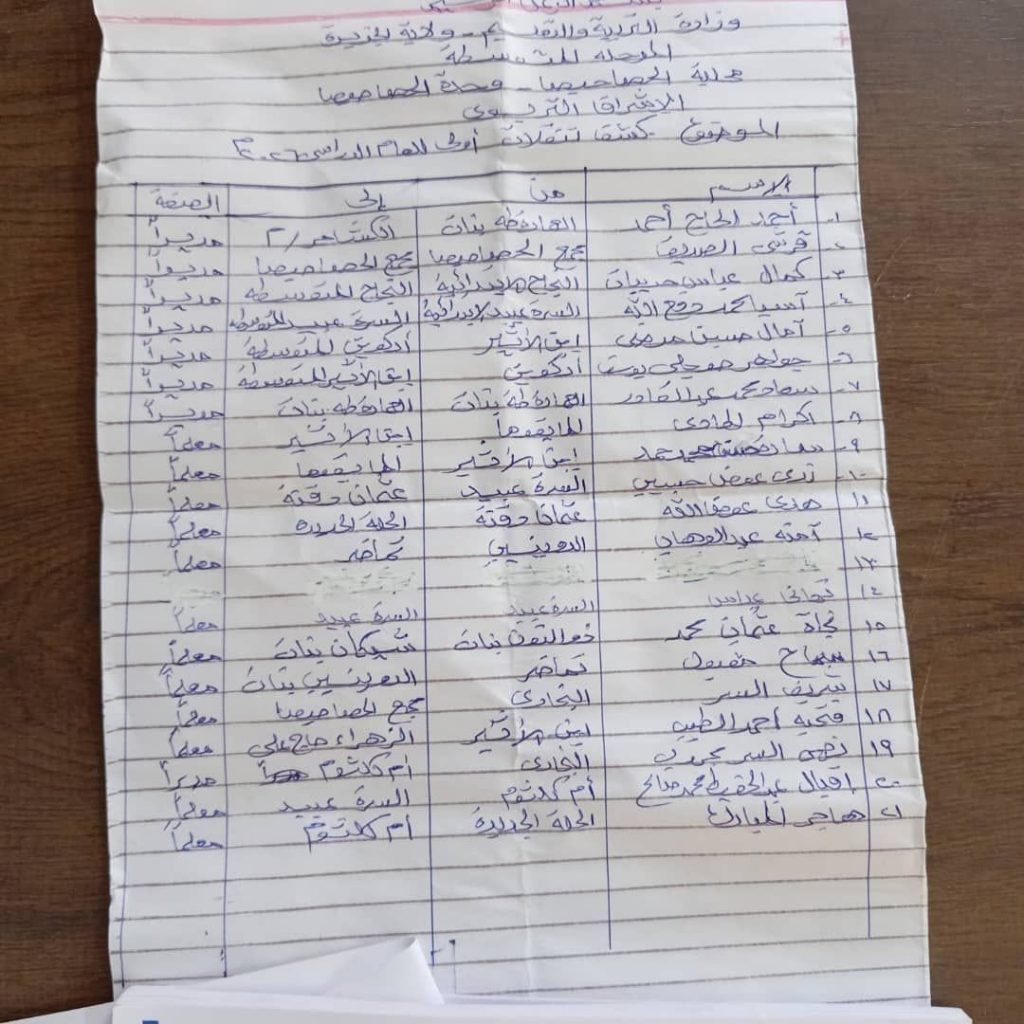 وزارة التربية والتعليم - ولاية الجزيرة
المرحلة المتوسطة
محلية الحصاحيصا - وحدة الحصاحيصا
الإشراق التربوي
الموضوع: كشف تنقلات أولى للعام الدراسي ٢٠٢٦م
الاسم من إلى الصفة
١- أحمد الحاج أحمد بنات ٢/ مديراً
٢- الصديق مجمع الحصاحيصا مجمع الحصاحيصا مديراً
٣- كمال عباس النجاح الابتدائية النجاح المتوسطة مديراً
٤- آسيا محمد دفع الله السرة عبيد الابتدائية السرة عبيد المتوسطة مديراً
٥- آمال حسين ابن الأثير أركويت المتوسطة مديراً
٦- يوسف أركويت ابن الأثير المتوسطة مديراً
٧- سعاد محمد عبدالقادر بنات بنات مديراً
٨- اكرام الهادي ابن الأثير معلماً
٩- حمد ابن الأثير معلماً
١٠- عوض السرة عبيد عثمان دقنة معلماً
١١ هدى عوض الله عثمان دقنة الحلة الجديدة معلماً
١٢ آمنة عبدالوهاب تماضر معلماً
١٣
١٤ تهاني عباس السرة عبيد السرة عبيد معلماً
١٥ نجاة عثمان محمد ذو النون بنات شيكان بنات معلماً
١٦ سماح مقبول تماضر بنات معلماً
١٧ السر البخاري مجمع الحصاحيصا معلماً
١٨ فتحية أحمد الطيب ابن الأثير الزهراء حاج علي معلماً
١٩ السر البخاري أم كلثوم مديراً
٢٠ اقبال محمد صالح أم كلثوم السرة عبيد معلماً
٢١ هاجر المبارك الحلة الجديدة أم كلثوم معلماً